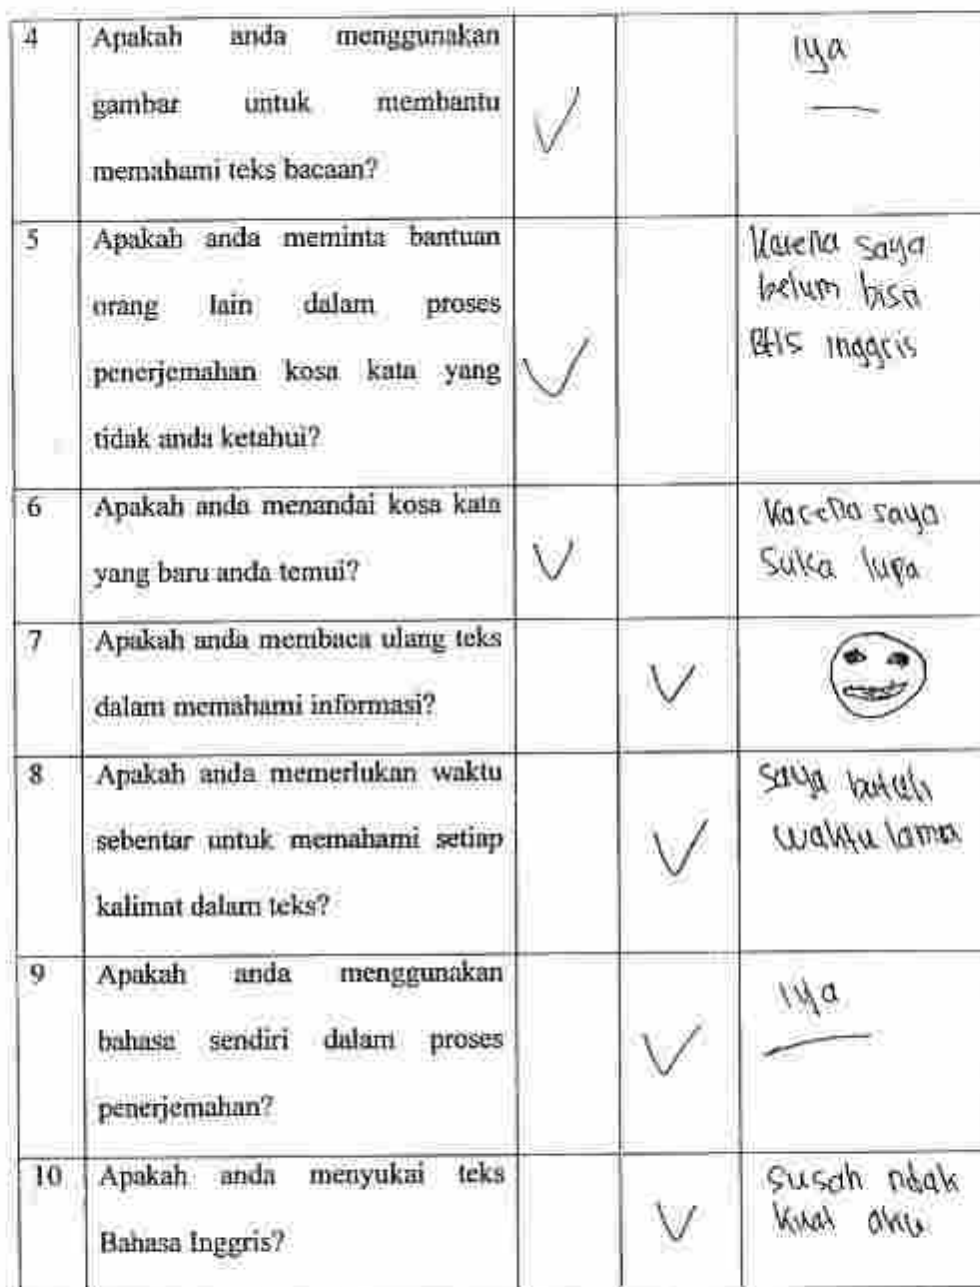 4 Apakah anda menggunakan
gambar untuk membantu
memahami teks bacaan?
iya
5 Apakah anda meminta bantuan
orang lain dalam proses
penerjemahan kosa kata yang
tidak anda ketahui?
Karena saya
belum bisa
inggris
6 Apakah anda menandai kosa kata
yang baru anda temui?
Karena saya
Suka lupa
7 Apakah anda membaca ulang teks
dalam memahami informasi?
8 Apakah anda memerlukan waktu
sebentar untuk memahami setiap
kalimat dalam teks?
saya butuh
waktu lama
9 Apakah anda menggunakan
bahasa sendiri dalam proses
penerjemahan?
iya
10 Apakah anda menyukai teks
Bahasa Inggris?
Susah ndak
kuat aku